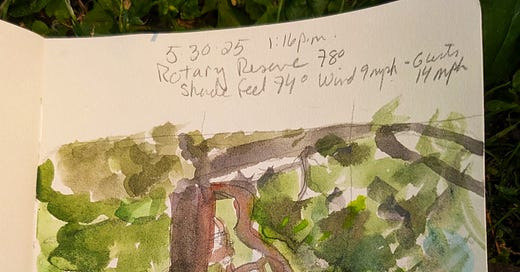 5·30·25 1:16 p.m.
Rotary Reserve 78°
Shade feel 74° Wind 9 mph - Gusts
14 mph